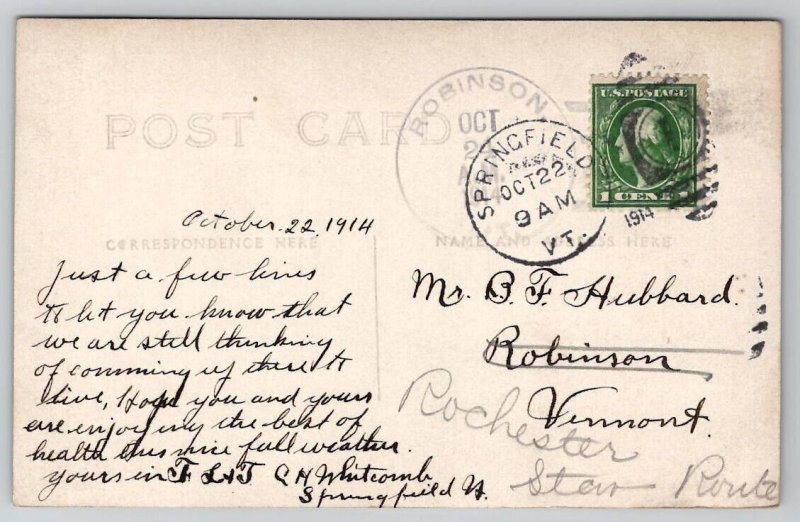 POST CARD
ROBINSON
OCT
SPRINGFIELD
OCT 22
9 AM
1914
VT.
U.S. POSTAGE
1 CENT
CORRESPONDENCE HERE
NAME AND ADDRESS HERE
October 22, 1914
Just a few lines
to let you know that
we are still thinking
of comming up there to
live, Hope you and yours
are enjoying the best of
health this nice fall weather.
yours in F L & T C H Whitcomb
Springfield Vt.
Mr. B. F. Hubbard.
Robinson
Vermont.
Rochester
Star Route